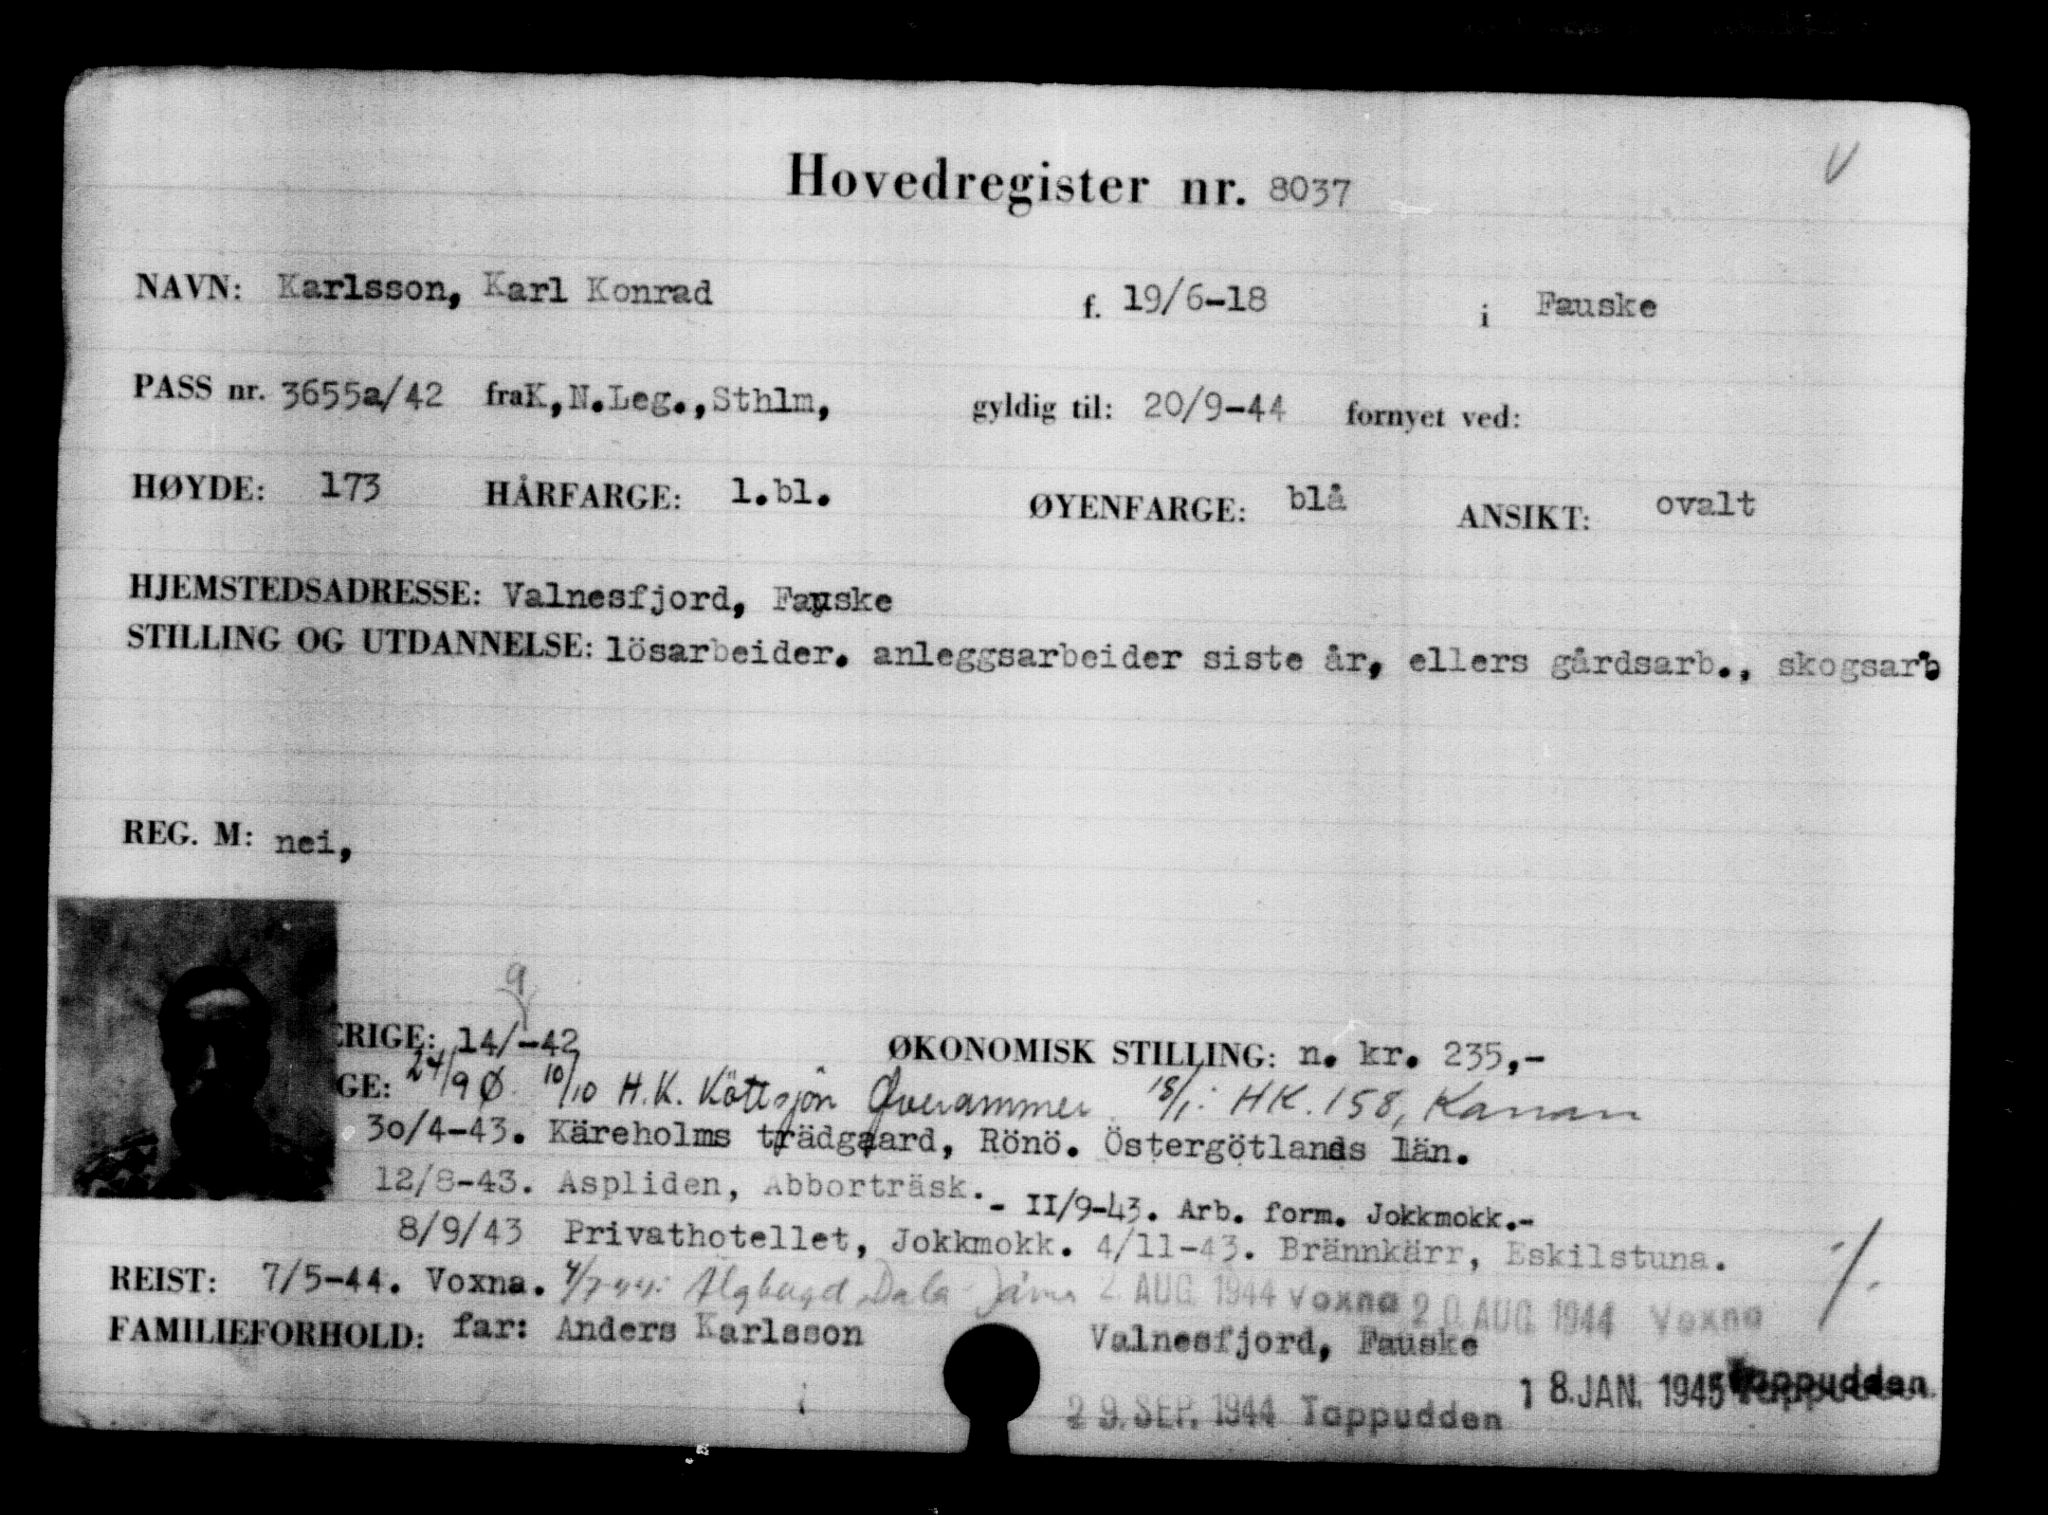 V
Hovedregister nr. 8037
NAVN: Karlsson, Karl Konrad f. 19/6-18 i Fauske
PASS nr. 3655a/42 fra K,N.Leg.,Sthlm, gyldig til: 20/9-44 fornyet ved:
HØYDE: 173 HÅRFARGE: l.bl. ØYENFARGE: blå ANSIKT: ovalt
HJEMSTEDSADRESSE: Valnesfjord, Fauske
STILLING OG UTDANNELSE: lösarbeider. anleggsarbeider siste år, ellers gårdsarb., skogsarb.
REG. M: nei,
9
ERIGE: 14/-42 ØKONOMISK STILLING: n. kr. 235,-
GE: 24/9 Ø. 10/10 H.K. Köttsjön Överammer. 18/1: HK. 158,
30/4-43. Käreholms trädgaard, Rönö. Östergötlands län.
12/8-43. Aspliden, Abborträsk. - 11/9-43. Arb. form. Jokkmokk.-
8/9/43 Privathotellet, Jokkmokk. 4/11-43. Brännkärr, Eskilstuna.
REIST: 7/5-44. Voxna. 4/7-44: Dala-Järna 2 AUG 1944 Voxna 20 AUG. 1944 Voxna
FAMILIEFORHOLD: far: Anders Karlsson Valnesfjord, Fauske
29. SEP. 1944 Tappudden 18. JAN. 1945 Tappudden